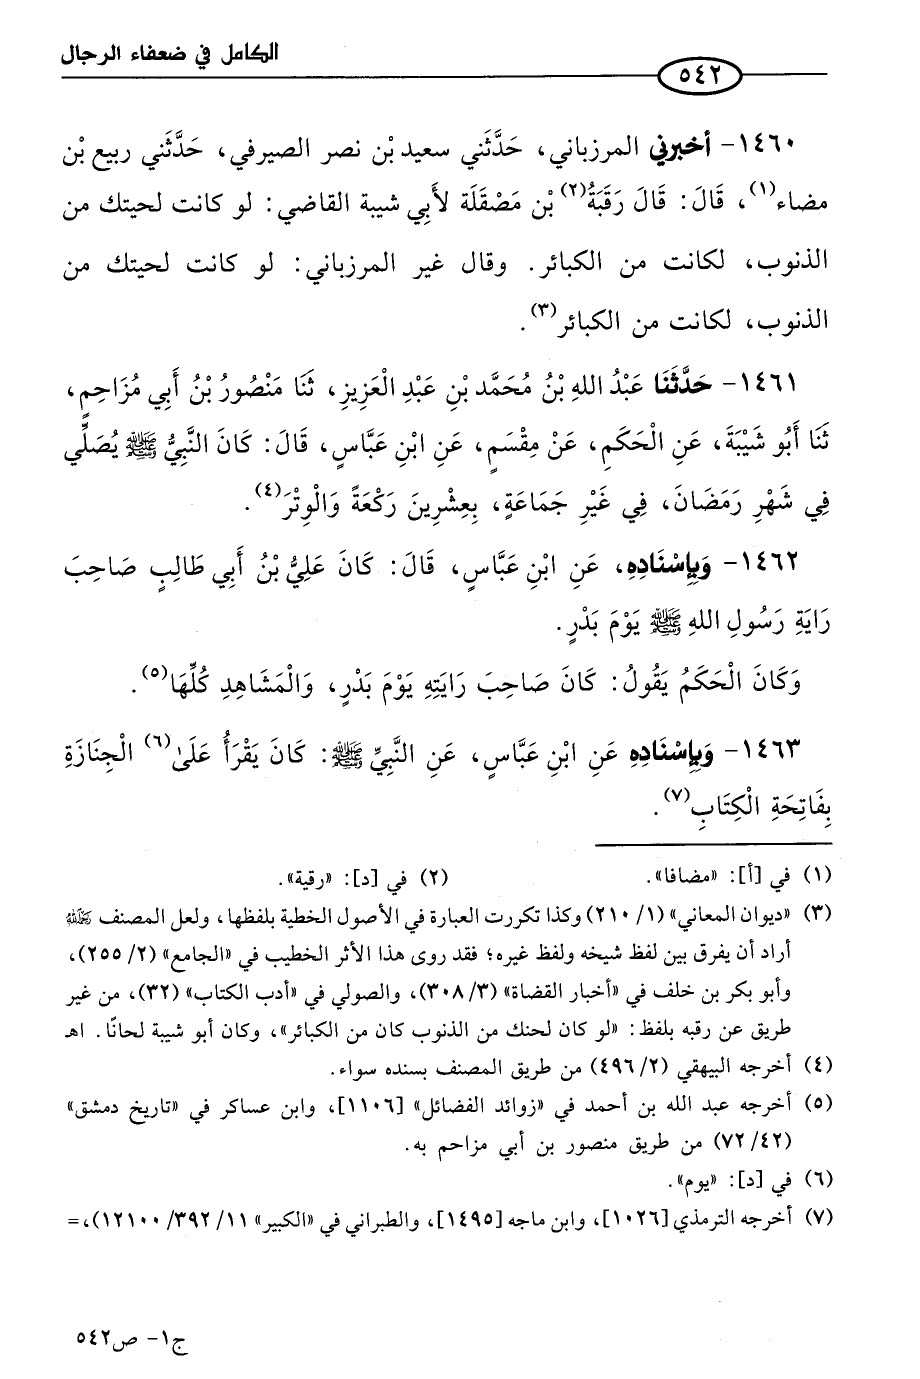 الكامل في ضعفاء الرجال
٥٤٢
١٤٦٠- أخبرني المرزباني، حَدَّثَني سعيد بْن نصر الصيرفي، حَدَّثَني ربيع بْن
مضاء(١)، قَالَ: قَالَ رَقَبَةُ(٢) بْن مَصْقَلَة لأَبي شيبة القاضي: لو كانت لحيتك من
الذنوب، لكانت من الكبائر. وقال غير المرزباني: لو كانت لحيتك من
الذنوب، لكانت من الكبائر(٣).
١٤٦١- حَدَّثَنَا عَبْدُ اللهِ بْنُ مُحَمَّد بْنِ عَبْدِ الْعَزِيزِ، ثَنَا مَنْصُورُ بْنُ أَبِي مُزَاحِمٍ،
ثَنَا أَبُو شَيْبَةَ، عَنِ الْحَكَمِ، عَنْ مِقْسَمٍ، عَنِ ابْنِ عَبَّاسٍ، قَالَ: كَانَ النَّبِيُّ ﷺ يُصَلِّي
فِي شَهْرِ رَمَضَانَ، فِي غَيْرِ جَمَاعَةٍ، بِعِشْرِينَ رَكْعَةً وَالْوِتْرَ(٤).
١٤٦٢- وَبِإِسْنَادِهِ، عَنِ ابْنِ عَبَّاسٍ، قَالَ: كَانَ عَلِيُّ بْنُ أَبِي طَالِبٍ صَاحِبَ
رَايَةِ رَسُولِ اللهِ ﷺ يَوْمَ بَدْرٍ.
وَكَانَ الْحَكَمُ يَقُولُ: كَانَ صَاحِبَ رَايَتِهِ يَوْمَ بَدْرٍ، وَالْمَشَاهِدِ كُلِّهَا(٥).
١٤٦٣- وَبِإِسْنَادِهِ عَنِ ابْنِ عَبَّاسٍ، عَنِ النَّبِيِّ ﷺ: كَانَ يَقْرَأُ عَلَىٰ(٦) الْجِنَازَةِ
بِفَاتِحَةِ الْكِتَابِ(٧).
(١) في [أ]: «مضافا». (٢) في [د]: «رقية».
(٣) «ديوان المعاني» (١/ ٢١٠) وكذا تكررت العبارة في الأصول الخطية بلفظها، ولعل المصنف رحمه الله
أراد أن يفرق بين لفظ شيخه ولفظ غيره؛ فقد روى هذا الأثر الخطيب في «الجامع» (٢/ ٢٥٥)،
وأبو بكر بن خلف في «أخبار القضاة» (٣/ ٣٠٨)، والصولي في «أدب الكتاب» (٣٢)، من غير
طريق عن رقبه بلفظ: «لو كان لحنك من الذنوب كان من الكبائر»، وكان أبو شيبة لحانًا. اهـ
(٤) أخرجه البيهقي (٢/ ٤٩٦) من طريق المصنف بسنده سواء.
(٥) أخرجه عبد الله بن أحمد في «زوائد الفضائل» [١١٠٦]، وابن عساكر في «تاريخ دمشق»
(٤٢/ ٧٢) من طريق منصور بن أبي مزاحم به.
(٦) في [د]: «يوم».
(٧) أخرجه الترمذي [١٠٢٦]، وابن ماجه [١٤٩٥]، والطبراني في «الكبير» ١١/ ٣٩٢/ ١٢١٠٠)، =
ج١- ص٥٤٢